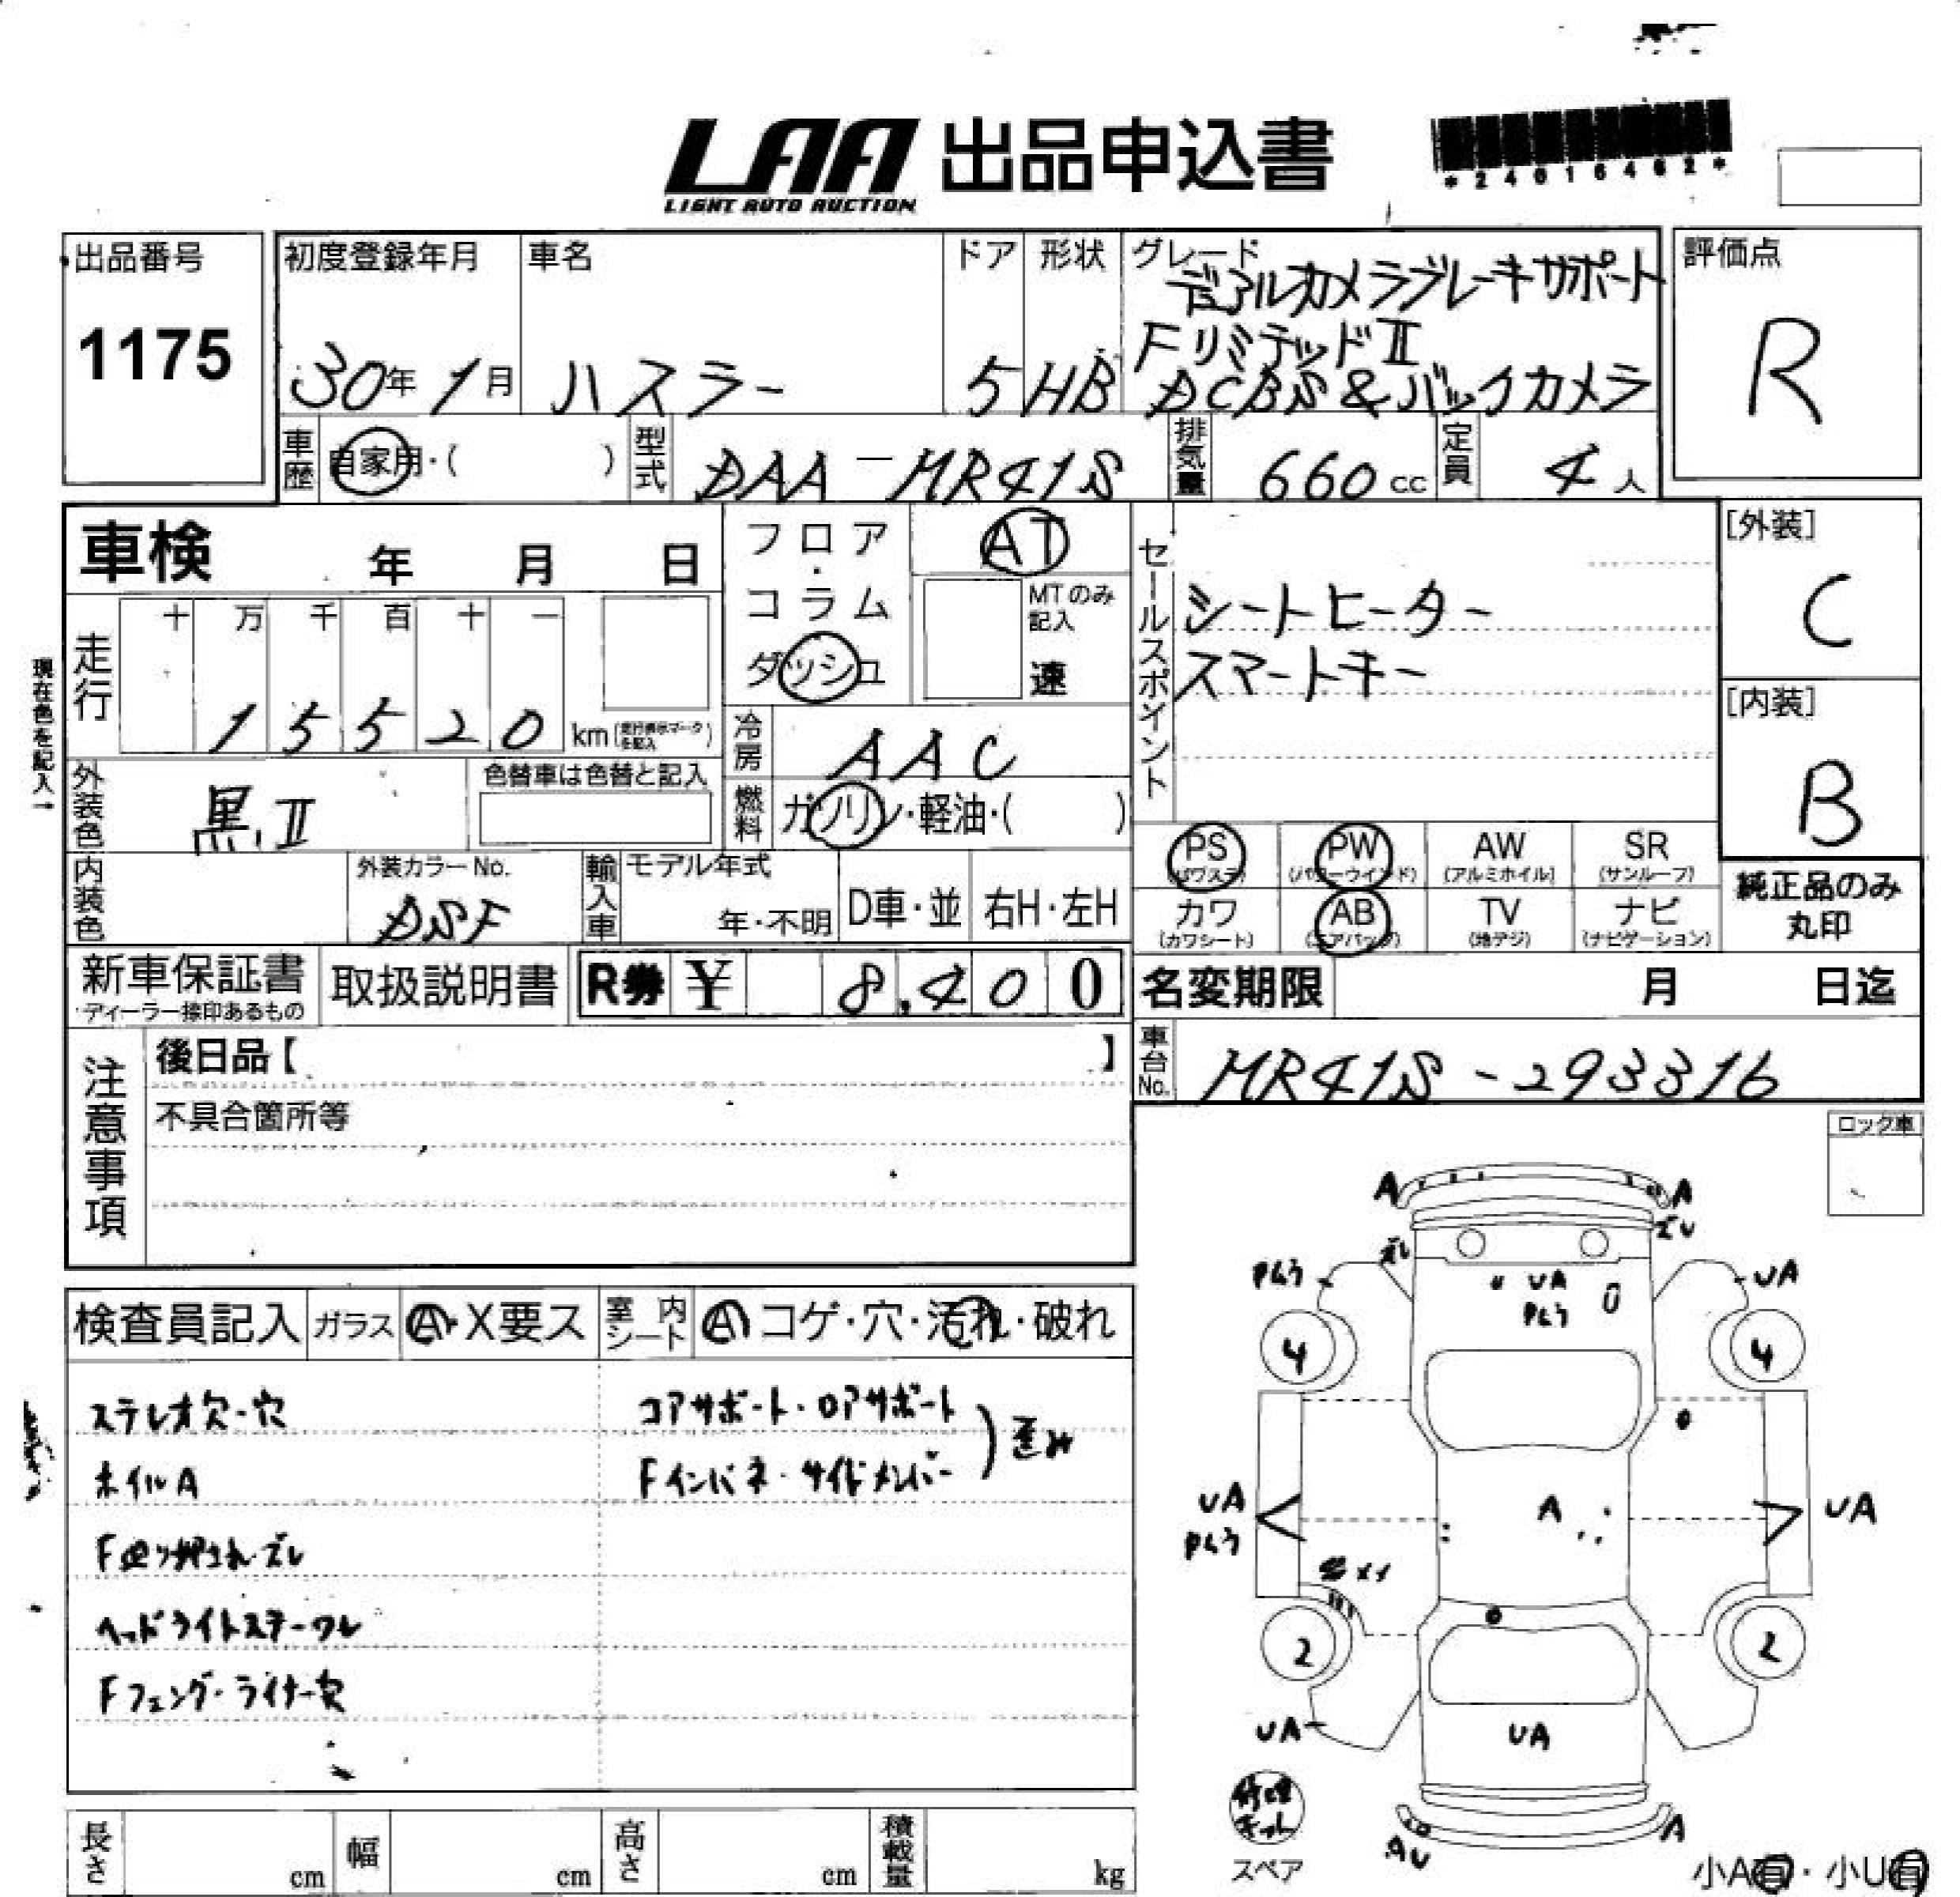 LAA 出品申込書
LIGHT AUTO AUCTION
*24016462*
出品番号
1175
初度登録年月
30年1月
車名
ハスラー
ドア
5
形状
HB
グレード
デュアルカメラブレーキサポート
FリミテッドⅡ
DCBS&バックカメラ
評価点
R
車歴
自家用・( )
型式
DAA-MR41S
排気量
660cc
定員
4人
車検 年 月 日
走行
十 万 千 百 十 一
15520 km
現在色を記入→
外装色
黒Ⅱ
色替車は色替と記入
内装色
外装カラーNo.
DSF
輸入車
モデル年式
年・不明
D車・並
右H・左H
フロア
・
コラム
ダッシュ
AT
MTのみ
記入
速
冷房
AAC
燃料
ガソリン・軽油・( )
セールスポイント
シートヒーター
スマートキー
[外装]
C
[内装]
B
PS
(パワステ)
PW
(パワーウインド)
AW
(アルミホイル)
SR
(サンルーフ)
カワ
(カワシート)
AB
(エアバッグ)
TV
(地デジ)
ナビ
(ナビゲーション)
純正品のみ
丸印
新車保証書
ディーラー捺印あるもの
取扱説明書
R券 ¥ 8,400
名変期限 月 日迄
車台No.
MR41S-293316
注意事項
後日品【 】
不具合箇所等
ロック車
検査員記入
ガラス
A・X要ス
室内シート
A コゲ・穴・汚れ・破れ
ステレオ欠・穴
ホイルA
F廻り押されズレ
ヘッドライトステーワレ
Fフェンダーライナー欠
コアサポート・ロアサポート
Fインパネ・サイドメンバー
歪み
A
A
ズレ
ズレ
Pムラ
UA
Pムラ
UA
4
4
UA
Pムラ
A
UA
2
2
UA
UA
修理
キット
スペア
AU
A
小A有・小U有
長さ cm
幅 cm
高さ cm
積載量 kg